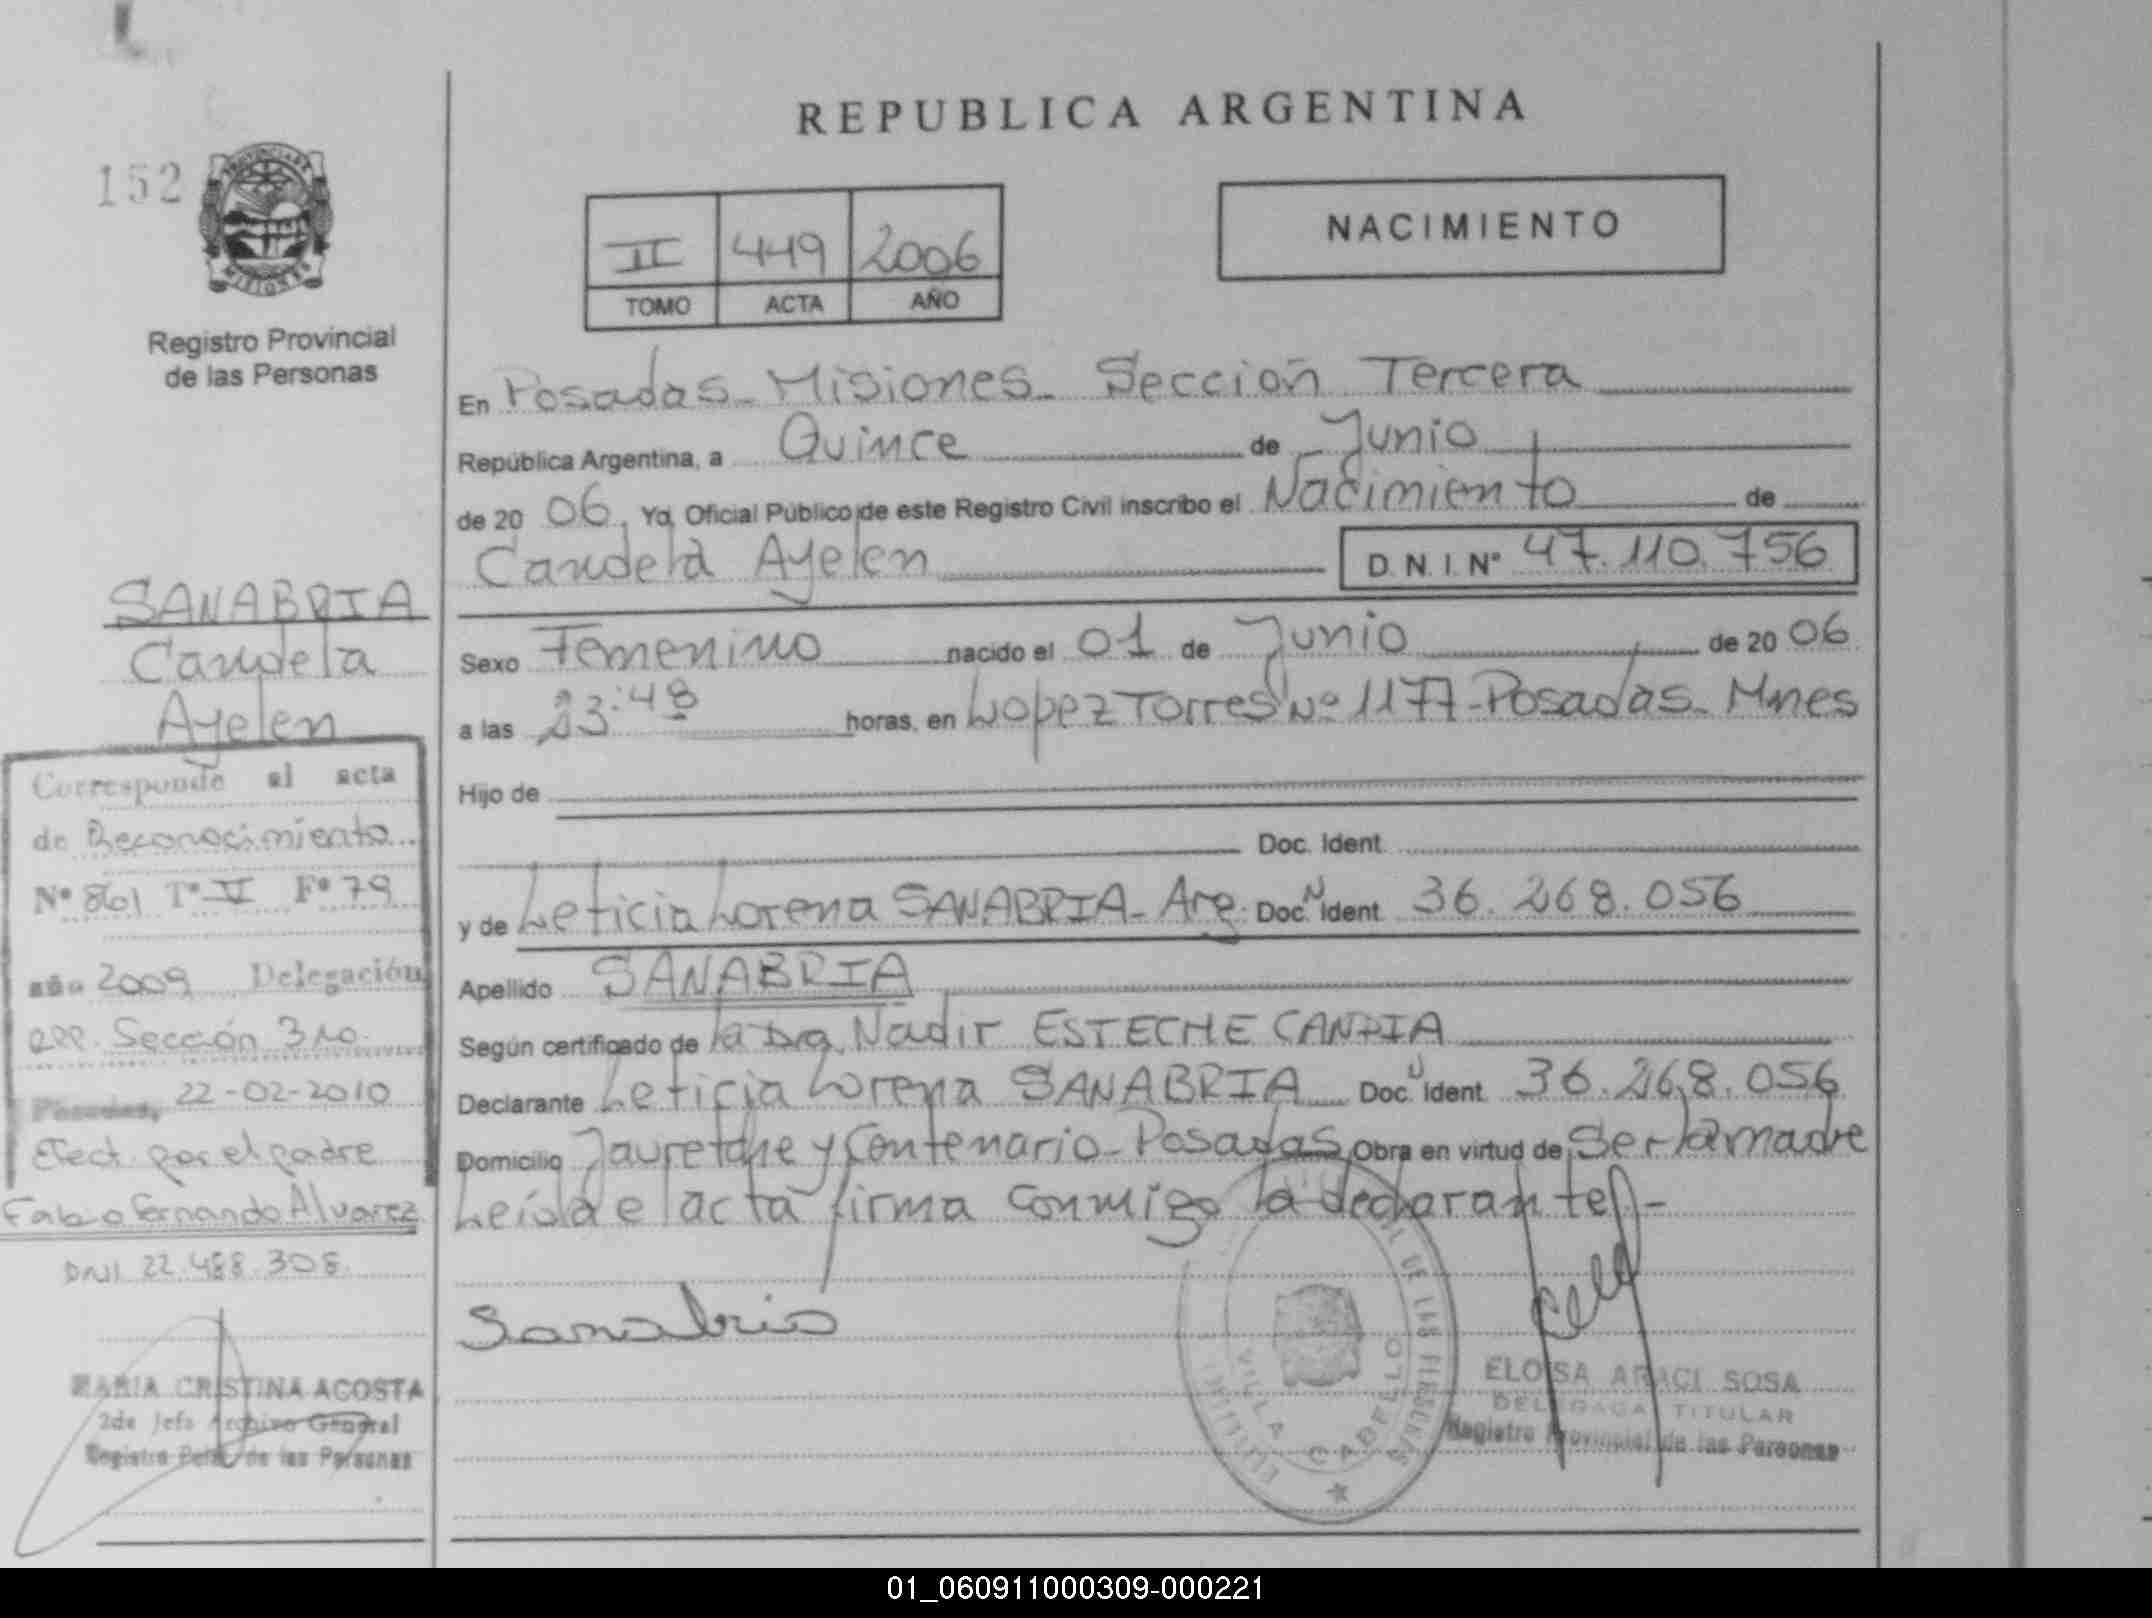 REPUBLICA ARGENTINA
152
PROVINCIA DE
MISIONES
Registro Provincial
de las Personas
II 449 2006
TOMO ACTA AÑO
NACIMIENTO
En Posadas - Misiones - Sección Tercera
República Argentina, a Quince de Junio
de 20 06, Yo, Oficial Público de este Registro Civil inscribo el Nacimiento de
Candela Ayelen D.N.I. Nº 47.110.756
Sexo Femenino nacido el 01 de Junio de 20 06
a las 23:48 horas, en Lopez Torres Nº 1177-Posadas- Mnes
Hijo de
Doc. Ident.
y de Leticia Lorena SANABRIA- Arg. Doc. N Ident. 36.268.056
Apellido SANABRIA
Según certificado de la Dra. Nadir ESTECHE CANDIA
Declarante Leticia Lorena SANABRIA Doc. U Ident. 36.268.056
Domicilio Jauretche y Centenario-Posadas Obra en virtud de Ser la madre
Leída el acta firma conmigo la declarante.-
Sanabria
DE LAS PERSONAS
VILLA CABELLO
ELOISA ARACI SOSA
DELEGADA TITULAR
Registro Provincial de las Personas
SANABRIA
Candela
Ayelen
Corresponde al acta
de Reconocimiento
Nº 861 Tº V Fº 79
año 2009 Delegación
Sección 3ra.
Posadas, 22-02-2010
Efect. por el padre
Fabio Fernando Alvarez
DNI 22.488.308.
MARIA CRISTINA ACOSTA
2da Jefa Archivo General
Registro Pcial. de las Personas
01_060911000309-000221